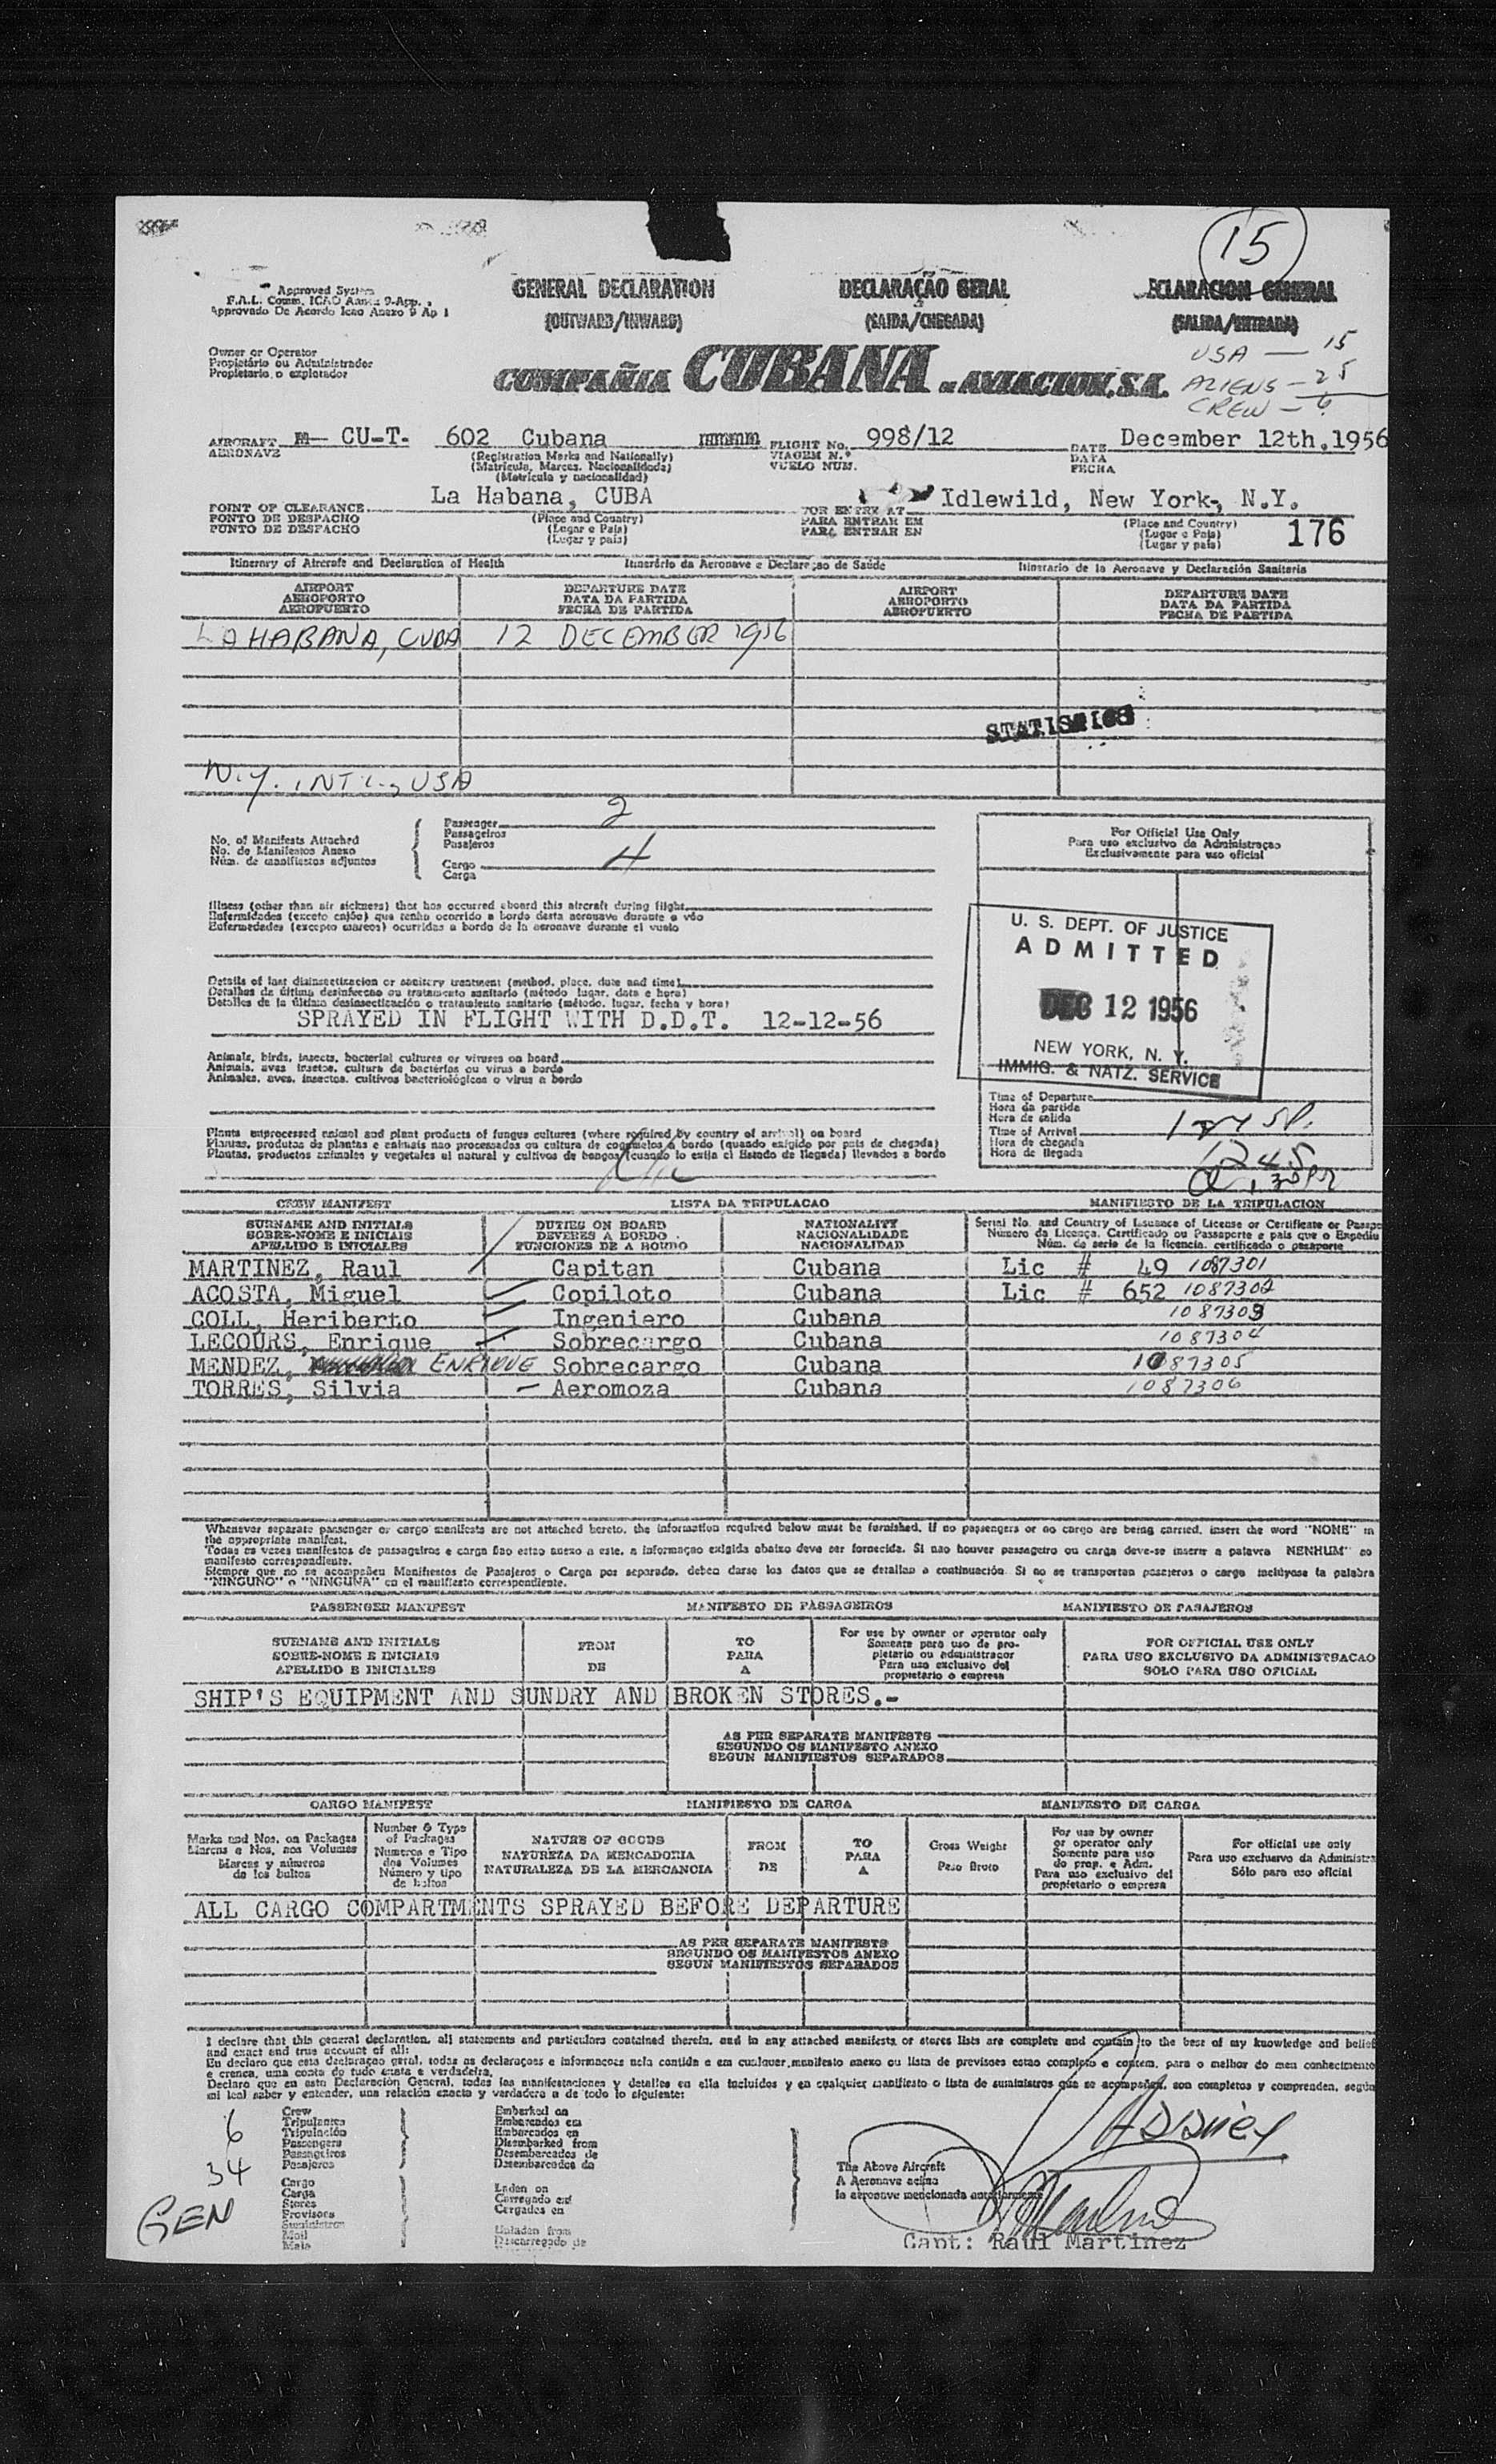 15
Approved System
F.A.L. Comm. ICAO Annex 9-App.
Approvado De Acordo Icao Anexo 9 Ap 1
GENERAL DECLARATION
(OUTWARD/INWARD)
DECLARAÇÃO GERAL
(SAIDA/CHEGADA)
ECLARACION GENERAL
(SALIDA/ENTRADA)
Owner or Operator
Propietário ou Administrador
Propietario o explotador
COMPAÑIA CUBANA DE AVIACION, S.A.
USA — 15
ALIENS — 25
CREW — 6
AIRCRAFT CU-T- 602 Cubana FLIGHT No. 998/12 DATE December 12th.1956
AERONAVE (Registration Marks and Nationally) VIAGEM N.º DATA
(Matricula, Marcas, Nacionalidade) VUELO NUM. FECHA
(Matricula y nacionalidad)
POINT OF CLEARANCE La Habana, CUBA FOR ENTRY AT Idlewild, New York, N.Y.
PONTO DE DESPACHO (Place and Country) PARA ENTRAR EM (Place and Country)
PUNTO DE DESPACHO (Lugar e Pais) PARA ENTRAR EN (Lugar e Pais)
(Lugar y pais) (Lugar y pais)
176
Itinerary of Aircraft and Declaration of Health Itinerário da Aeronave e Declaração de Saúde Itinerario de la Aeronave y Declaración Sanitaria
AIRPORT DEPARTURE DATE AIRPORT DEPARTURE DATE
AEROPORTO DATA DA PARTIDA AEROPORTO DATA DA PARTIDA
AEROPUERTO FECHA DE PARTIDA AEROPUERTO FECHA DE PARTIDA
LA HABANA, CUBA 12 DECEMBER 1956
STATISTICS
N.Y. INT'L, USA
No. of Manifests Attached
No. de Manifestos Anexo
Núm. de manifiestos adjuntos
Passenger 2
Passageiros
Pasajeros
Cargo 4
Carga
For Official Use Only
Para uso exclusivo da Administraçao
Exclusivamente para uso oficial
Illness (other than air sickness) that has occurred aboard this aircraft during flight
Enfermidades (exceto enjôo) que tenha ocorrido a bordo desta aeronave durante o vôo
Enfermedades (excepto mareos) ocurridas a bordo de la aeronave durante el vuelo
U. S. DEPT. OF JUSTICE
ADMITTED
DEC 12 1956
NEW YORK, N. Y.
IMMIG. & NATZ. SERVICE
Details of last disinsectization or sanitary treatment (method, place, date and time)
Detalhes da última desinfecçao ou tratamento sanitario (método lugar, data e hora)
Detalles de la última desinsectización o tratamiento sanitario (método, lugar, fecha y hora)
SPRAYED IN FLIGHT WITH D.D.T. 12-12-56
Animals, birds, insects, bacterial cultures or viruses on board
Animais, aves insetos, cultura de bactérias ou virus a bordo
Animales, aves, insectos, cultivos bacteriológicos o virus a bordo
Time of Departure
Hora da partida
Hora de salida
Time of Arrival
Hora de chegada
Hora de llegada
1245
Plants unprocessed animal and plant products of fungus cultures (where required by country of arrival) on board
Plantas, produtos de plantas e animais nao processados ou cultura de cogumelos a bordo (quando exigido por pais de chegada)
Plantas, productos animales y vegetales al natural y cultivos de hongos (cuando lo exija el Estado de llegada) llevados a bordo
CREW MANIFEST LISTA DA TRIPULACAO MANIFIESTO DE LA TRIPULACION
SURNAME AND INITIALS DUTIES ON BOARD NATIONALITY Serial No. and Country of Issuance of License or Certificate or Passpo
SOBRE-NOME E INICIAIS DEVERES A BORDO NACIONALIDADE Número da Licença, Certificado ou Passaporte e pais que o Expediu
APELLIDO E INICIALES FUNCIONES DE A BORDO NACIONALIDAD Núm. de serie de la licencia, certificado o pasaporte
MARTINEZ, Raul Capitan Cubana Lic # 49 1087301
ACOSTA, Miguel Copiloto Cubana Lic # 652 1087302
COLL, Heriberto Ingeniero Cubana 1087303
LECOURS, Enrique Sobrecargo Cubana 1087304
MENDEZ, ENRIQUE Sobrecargo Cubana 1087305
TORRES, Silvia Aeromoza Cubana 1087306
Whenever separate passenger or cargo manifests are not attached hereto, the information required below must be furnished. If no passengers or no cargo are being carried, insert the word "NONE" in
the appropriate manifest.
Todas as vezes manifestos de passageiros e carga nao estao anexo a este, a informaçao exigida abaixo deve ser fornecida. Si nao houver passageiro ou carga deve-se inserir a palavra NENHUM" no
manifesto correspondiente.
Siempre que no se acompañen Manifiestos de Pasajeros o Carga por separado, deben darse los datos que se detallan a continuación. Si no se transportan pasajeros o carga inclúyase la palabra
"NINGUNO" o "NINGUNA" en el manifiesto correspondiente.
PASSENGER MANIFEST MANIFESTO DE PASSAGEIROS MANIFIESTO DE PASAJEROS
SURNAME AND INITIALS FROM TO For use by owner or operator only FOR OFFICIAL USE ONLY
SOBRE-NOME E INICIAIS DE PARA Somente para uso de pro- PARA USO EXCLUSIVO DA ADMINISTRACAO
APELLIDO E INICIALES A pietario ou administrador SOLO PARA USO OFICIAL
Para uso exclusivo del
propietario o empresa
SHIP'S EQUIPMENT AND SUNDRY AND BROKEN STORES.-
AS PER SEPARATE MANIFESTS
SEGUNDO OS MANIFESTO ANEXO
SEGUN MANIFIESTOS SEPARADOS
CARGO MANIFEST MANIFIESTO DE CARGA MANIFESTO DE CARGA
Marks and Nos. on Packages
Marcas e Nos. nos Volumes
Marcas y números
de los bultos
Number & Type
of Packages
Numeros e Tipo
dos Volumes
Número y tipo
de bultos
NATURE OF GOODS
NATUREZA DA MERCADORIA
NATURALEZA DE LA MERCANCIA
FROM
DE
TO
PARA
A
Gross Weight
Peso Bruto
For use by owner
or operator only
Somente para uso
do prop. e Adm.
Para uso exclusivo del
propietario o empresa
For official use only
Para uso exclusivo da Administra
Sólo para uso oficial
ALL CARGO COMPARTMENTS SPRAYED BEFORE DEPARTURE
AS PER SEPARATE MANIFESTS
SEGUNDO OS MANIFESTOS ANEXO
SEGUN MANIFIESTOS SEPARADOS
I declare that this general declaration, all statements and particulars contained therein, and in any attached manifests or stores lists are complete and contain to the best of my knowledge and belief
and exact and true account of all:
Eu declaro que esta declaraçao geral, todas as declaraçoes e informacoes nela contida e em cualquer manifesto anexo ou lista de previsoes estao completo e contem, para o melhor do meu conhecimento
e crenca, uma conta de tudo exata e verdadeira.
Declaro que en esta Declaración General, todas las manifestaciones y detalles en ella incluidos y en cualquier manifiesto o lista de suministros que se acompañan, son completos y comprenden, según
mi leal saber y entender, una relación exacta y verdadera a de todo lo siguiente:
6
34
GEN
Crew
Tripulantes
Tripulación
Passengers
Passageiros
Pasajeros
Cargo
Carga
Stores
Provisoes
Suministros
Mail
Mala
Embarked on
Embarcados em
Embarcados en
Disembarked from
Desembarcados de
Desembarcados de
Laden on
Carregado em
Cargados en
Unladen from
Descarregado de
The Above Aircraft
A Aeronave acima
la aeronave mencionada anteriormente
Capt: Raul Martinez